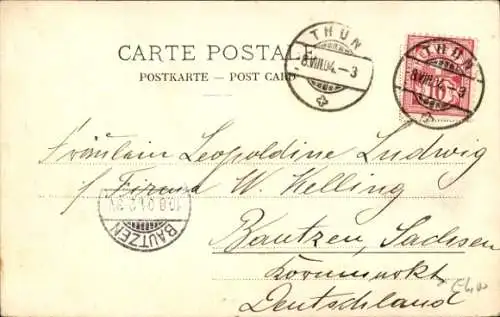 CARTE POSTALE
POSTKARTE — POST CARD
THUN
8.VIII.04.–3
THUN
8.VIII.04.–3
10
Fräulein Leopoldine Ludwig
p/ Firma W. Kelling
BAUTZEN
Bautzen, Sachsen
Kornmarkt
Deutschland